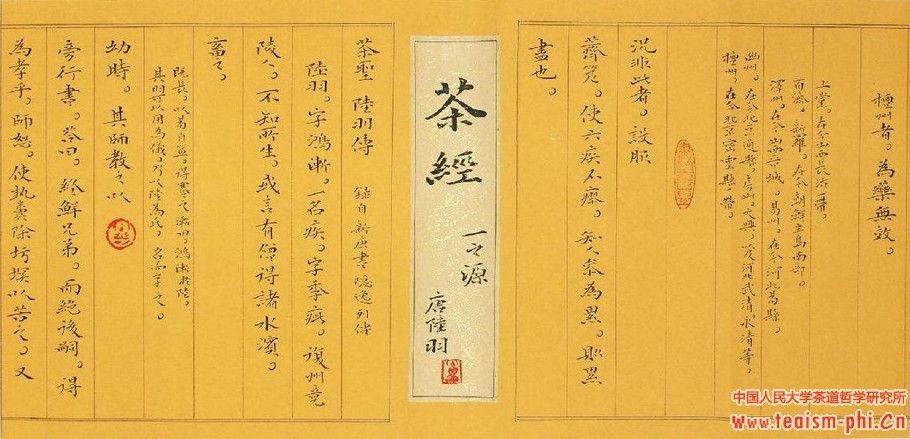 檀州者。為藥無效。
上黨。在今山西長治一帶。
百濟。新羅。在今朝鮮半島南部。
澤州。在今山西晉城。易州。在今河北易縣。
幽州。在今北京通縣。房山。大興。以及河北武清。永清等。
檀州。在今北京密雲縣一帶。
況非此者。設服
薺苨。使六疾不瘳。知人參為累。則累
盡也。
茶經
一之源
唐陸羽
茶聖 陸羽傳 錄自新唐書隱逸列傳
陸羽。字鴻漸。一名疾。字季疵。復州竟
陵人。不知所生。或言有僧得諸水濱。
畜之。
既長。以易自筮。得蹇之漸曰。鴻漸於陸。
其羽可以用為儀。乃以陸為氏。名而字之。
幼時。其師教之以
旁行書。答曰。終鮮兄弟。而絕後嗣。得
為孝乎。師怒。使執糞除圬塓以苦之。又
中国人民大学茶道哲学研究所
www.teaism-phi.Cn